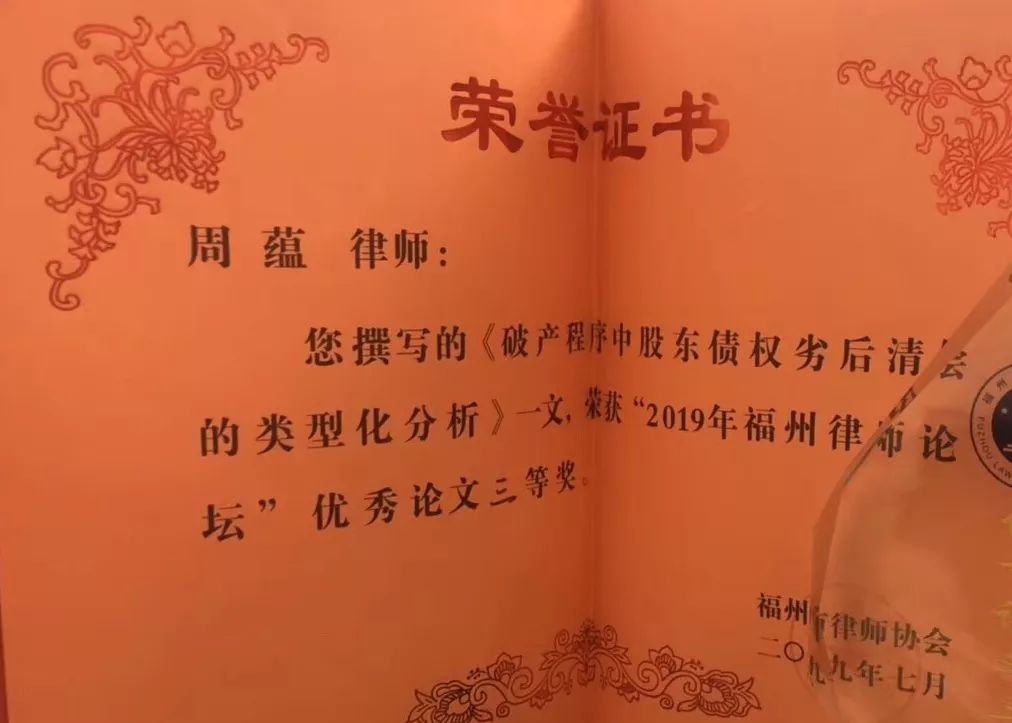 荣誉证书
周 蕴 律师：
您撰写的《破产程序中股东债权劣后清尝
的类型化分析》一文，荣获“2019年福州律师论
坛”优秀论文三等奖。
福州市律师协会
二〇九九年七月
福州
FUZHOU